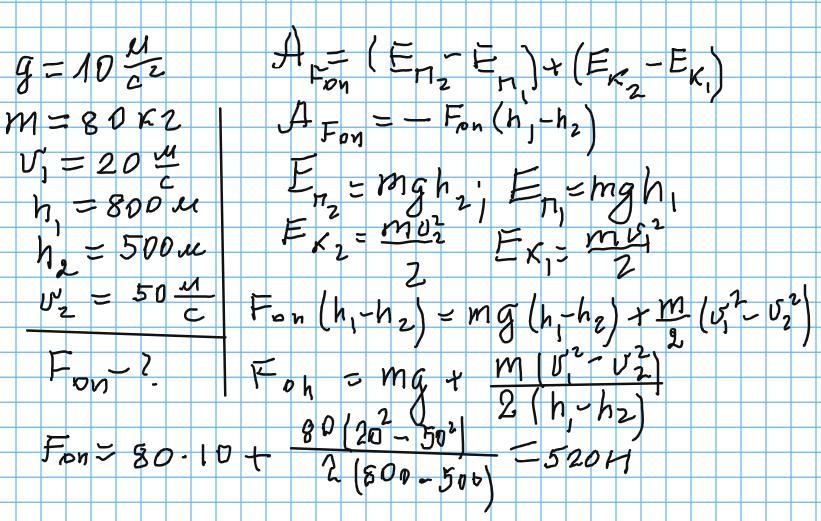 g = 10 м/с²
m = 80 кг
v₁ = 20 м/с
h₁ = 800 м
h₂ = 500 м
v₂ = 50 м/с
Fоп - ?
A_Fоп = (Eп₂ - Eп₁) + (Eк₂ - Eк₁)
A_Fоп = - Fоп (h₁ - h₂)
Eп₂ = mgh₂; Eп₁ = mgh₁
Eк₂ = mv₂²/2 Eк₁ = mv₁²/2
Fоп (h₁ - h₂) = mg (h₁ - h₂) + m/2 (v₁² - v₂²)
Fоп = mg + m(v₁² - v₂²)/2(h₁ - h₂)
Fоп = 80 · 10 + 80(20² - 50²)/2(800 - 500) = 520 Н